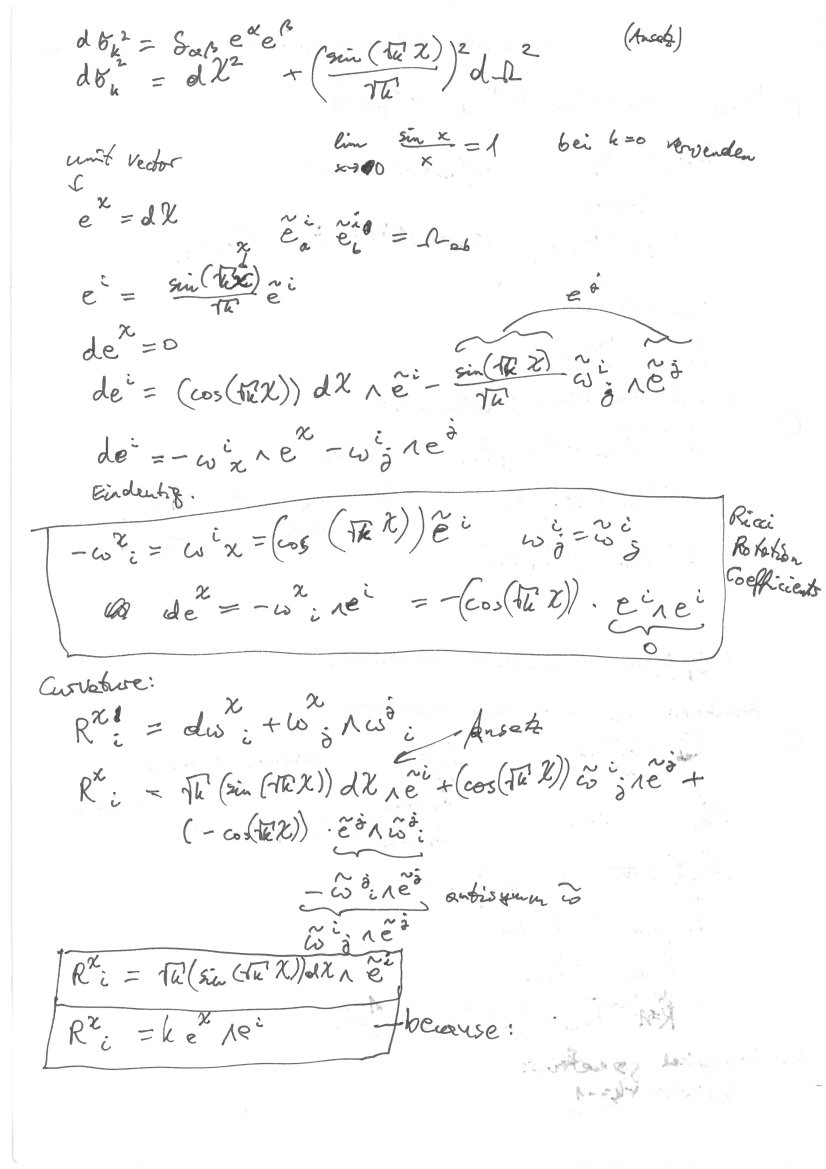 dσ_k² = δ_αβ e^α e^β (Ansatz)
dσ_k² = dχ² + (sin(√k χ)/√k)² dΩ²
lim_{x→0} sin x / x = 1 bei k=0 verwenden
unit vector
↓
e^χ = dχ ẽ^i_a · ẽ^i_b = Ω_ab
e^i = sin(√k χ)/√k ẽ^i
e^j
de^χ = 0
de^i = (cos(√k χ)) dχ ∧ ẽ^i − sin(√k χ)/√k ω̃^i_j ∧ ẽ^j
de^i = −ω^i_χ ∧ e^χ − ω^i_j ∧ e^j
Eindentif.
−ω^χ_i = ω^i_χ = (cos (√k χ)) ẽ^i ω^i_j = ω̃^i_j
Ricci
Rotation
Coefficients
de^χ = −ω^χ_i ∧ e^i = −(cos(√k χ)) · e^i ∧ e^i
0
Curvature:
R^χ_i = dω^χ_i + ω^χ_j ∧ ω^j_i Ansatz
R^χ_i = √k (sin (√k χ)) dχ ∧ ẽ^i + (cos(√k χ)) ω̃^i_j ∧ ẽ^j +
(−cos(√k χ)) · ẽ^j ∧ ω̃^j_i
−ω̃^j_i ∧ ẽ^j antisymm ω̃
ω̃^i_j ∧ ẽ^j
R^χ_i = √k (sin (√k χ)) dχ ∧ ẽ^i
R^χ_i = k e^χ ∧ e^i — because: